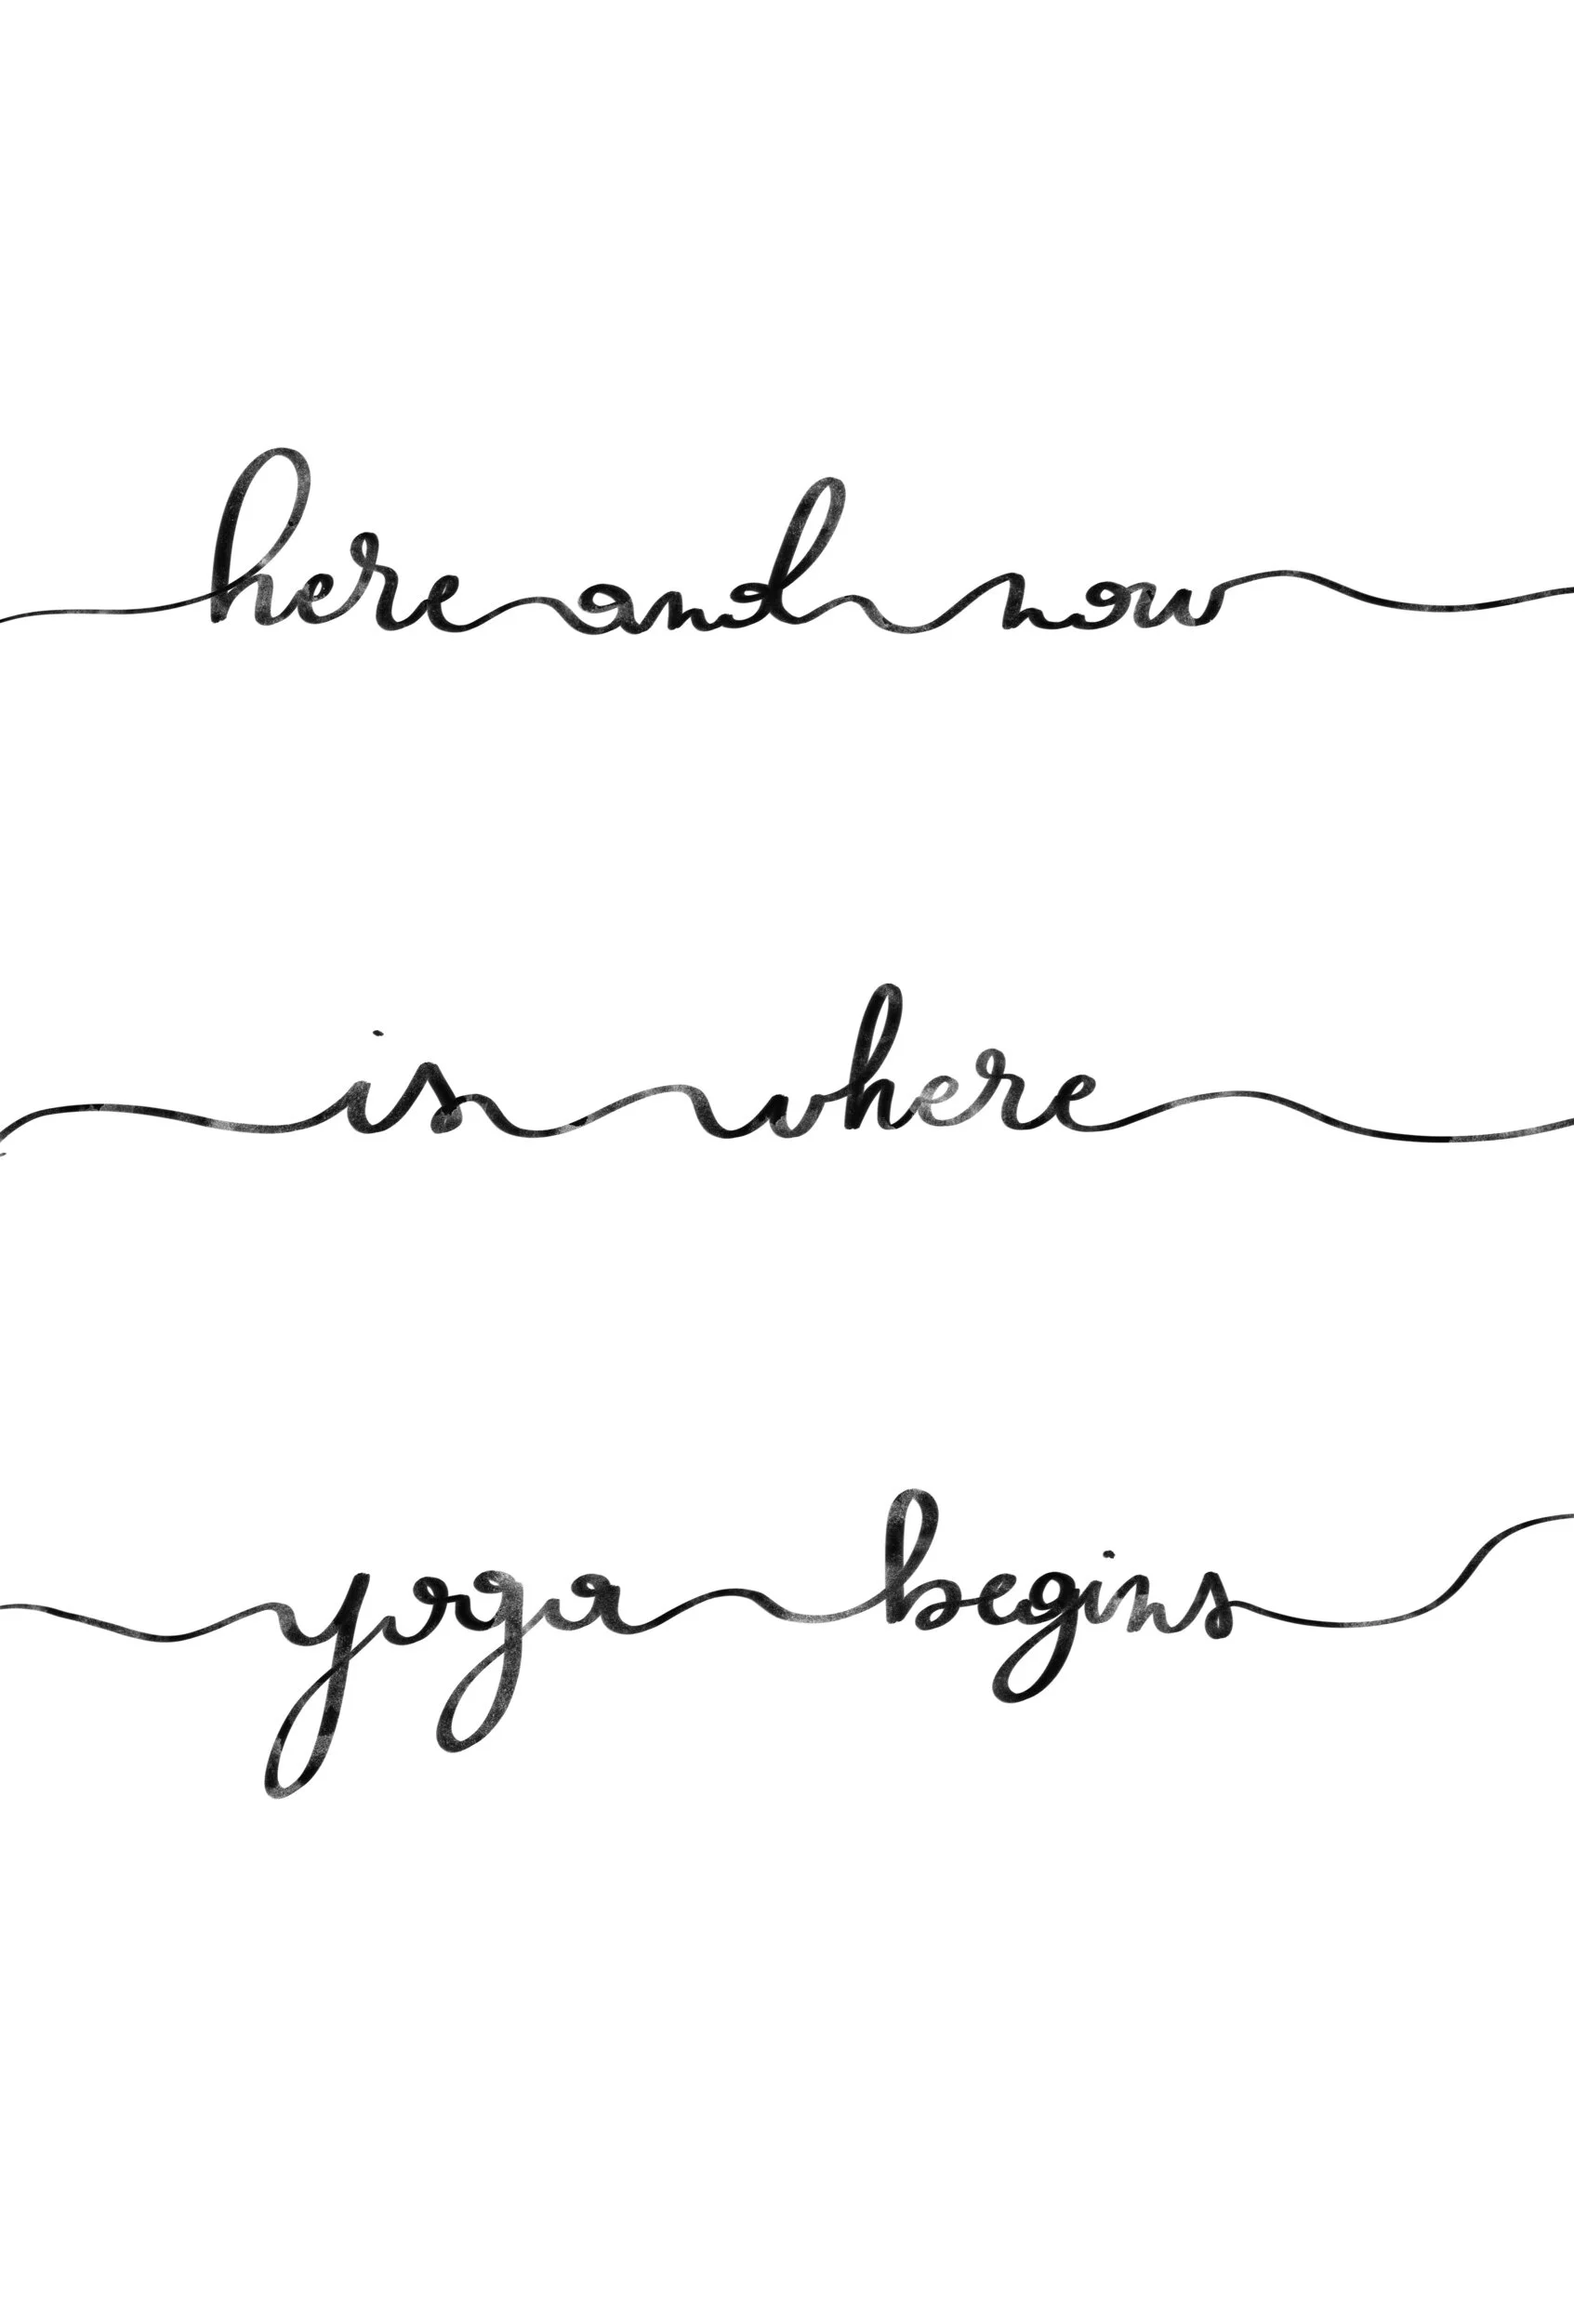 here and now
is where
yoga begins